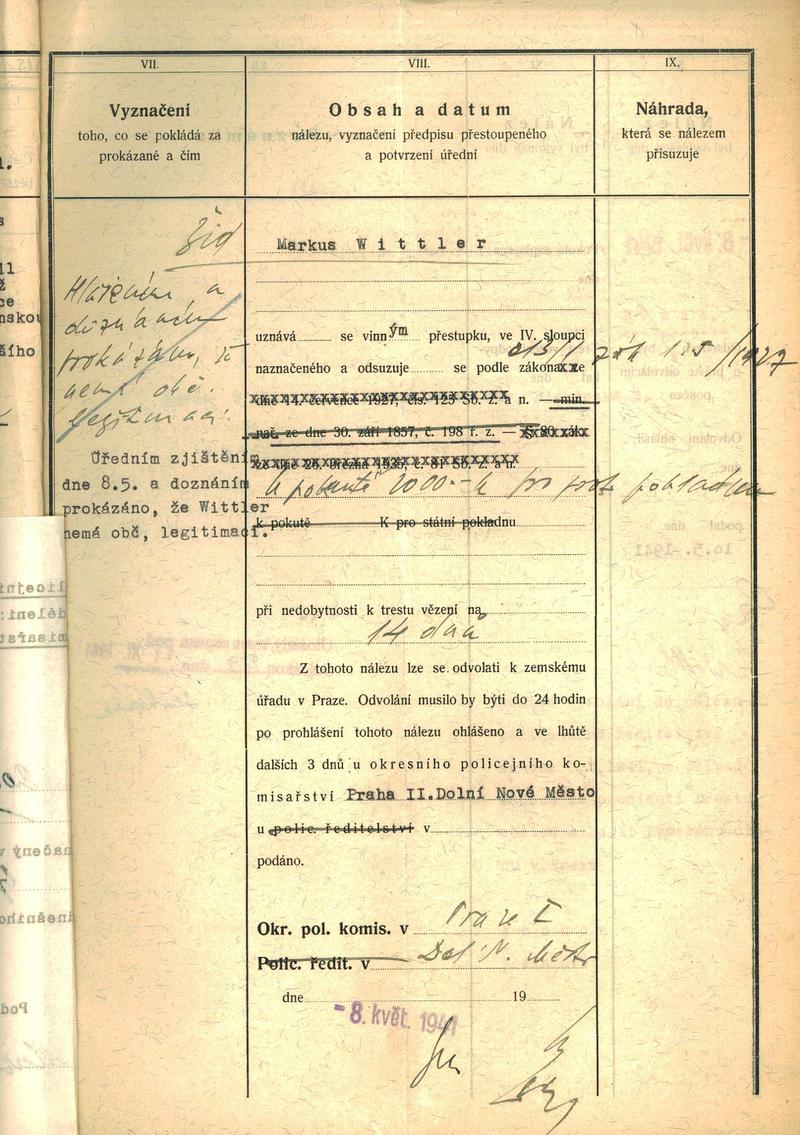 VII.
VIII.
IX.
Vyznačení
toho, co se pokládá za
prokázané a čím
Obsah a datum
nálezu, vyznačení předpisu přestoupeného
a potvrzení úřední
Náhrada,
která se nálezem
přisuzuje
Žid
Hlášením a
doznáním
prokázáno, že
nemá obč.
legitimaci.
Úředním zjištěním
dne 8.5. a doznáním
prokázáno, že Wittler
nemá obč, legitimaci.
Markus Wittler
uznává se vinným přestupku, ve IV. sloupci
naznačeného a odsuzuje se podle zákona ze
zák 125/1927
dne 14. července 1927, čís. 125 Sb. z. a n. — min.
nař. ze dne 30. září 1857, č. 198 ř. z. —
ze dne 26. března 1936, č. 81 Sb. z. a n.
k pokutě 2000.- K pro prot. pokladnu
k pokutě K pro státní pokladnu
při nedobytnosti k trestu vězení na
14 dnů
Z tohoto nálezu lze se odvolati k zemskému
úřadu v Praze. Odvolání musilo by býti do 24 hodin
po prohlášení tohoto nálezu ohlášeno a ve lhůtě
dalších 3 dnů u okresního policejního ko-
misařství Praha II.Dolní Nové Město
u polic. ředitelství v
podáno.
Okr. pol. komis. v Praze II
Polic. ředit. v Dol. N. Město
dne 19
-8. květ. 1941